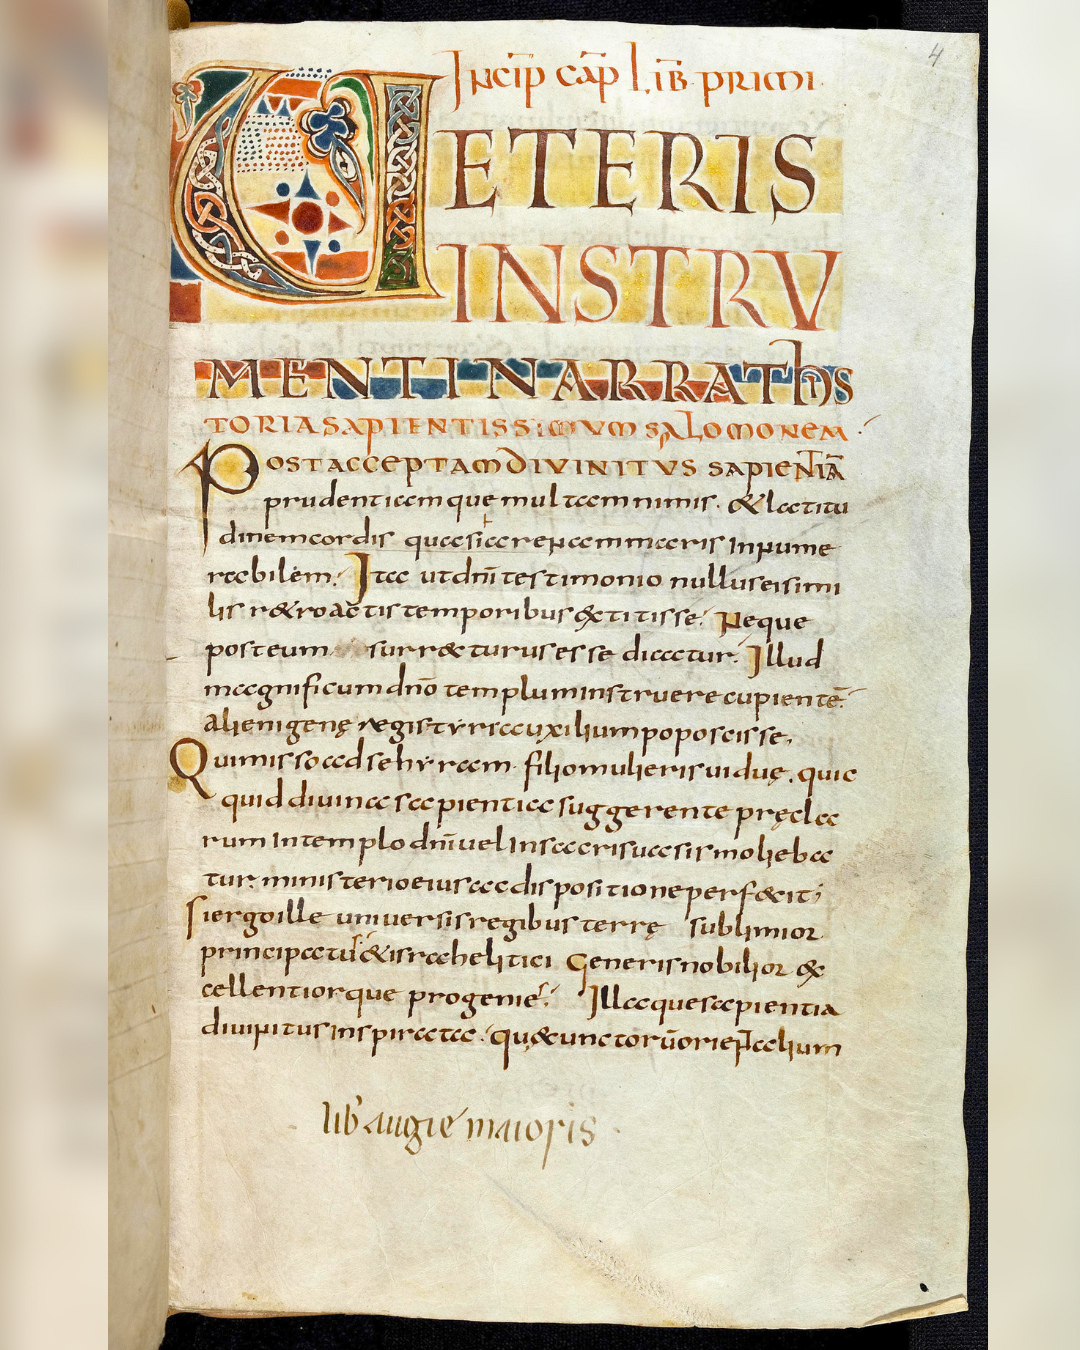 4
Incip̄ cap̄ Lib̄ primi
VETERIS
INSTRV
MENTI NARRAT hIS
TORIA SAPIENTISSIMUM SALOMONEM·
POST ACCEPTAM DIVINITVS SAPIENTIĀ
prudentiam que multam nimis· & latitu
dinem cordis quasi arenam maris innume
rabilem· Ita ut dn̄i testimonio nullus ei simi
lis r&roactis temporibus extitisse· Neque
post eum surrecturus esse dicatur· Illud
magnificum dn̄o templum instruere cupientē·
alienigenę regis tyri auxilium poposcisse·
Qui misso ad se hyram· filio mulieris viduę· quic
quid divina sapientia suggerente pręcla
rum in templo dn̄i vel in sacris vasis molieba
tur· ministerio eius ac dispositione perf&it;
Si ergo ille universis regibus terrę sublimior
principatu & israhelitici Generis nobilior ex
cellentiorque progenie· Illaque sapientia
divinitus inspirata· quę cunctorū orientalium
lib̄ augie maioris